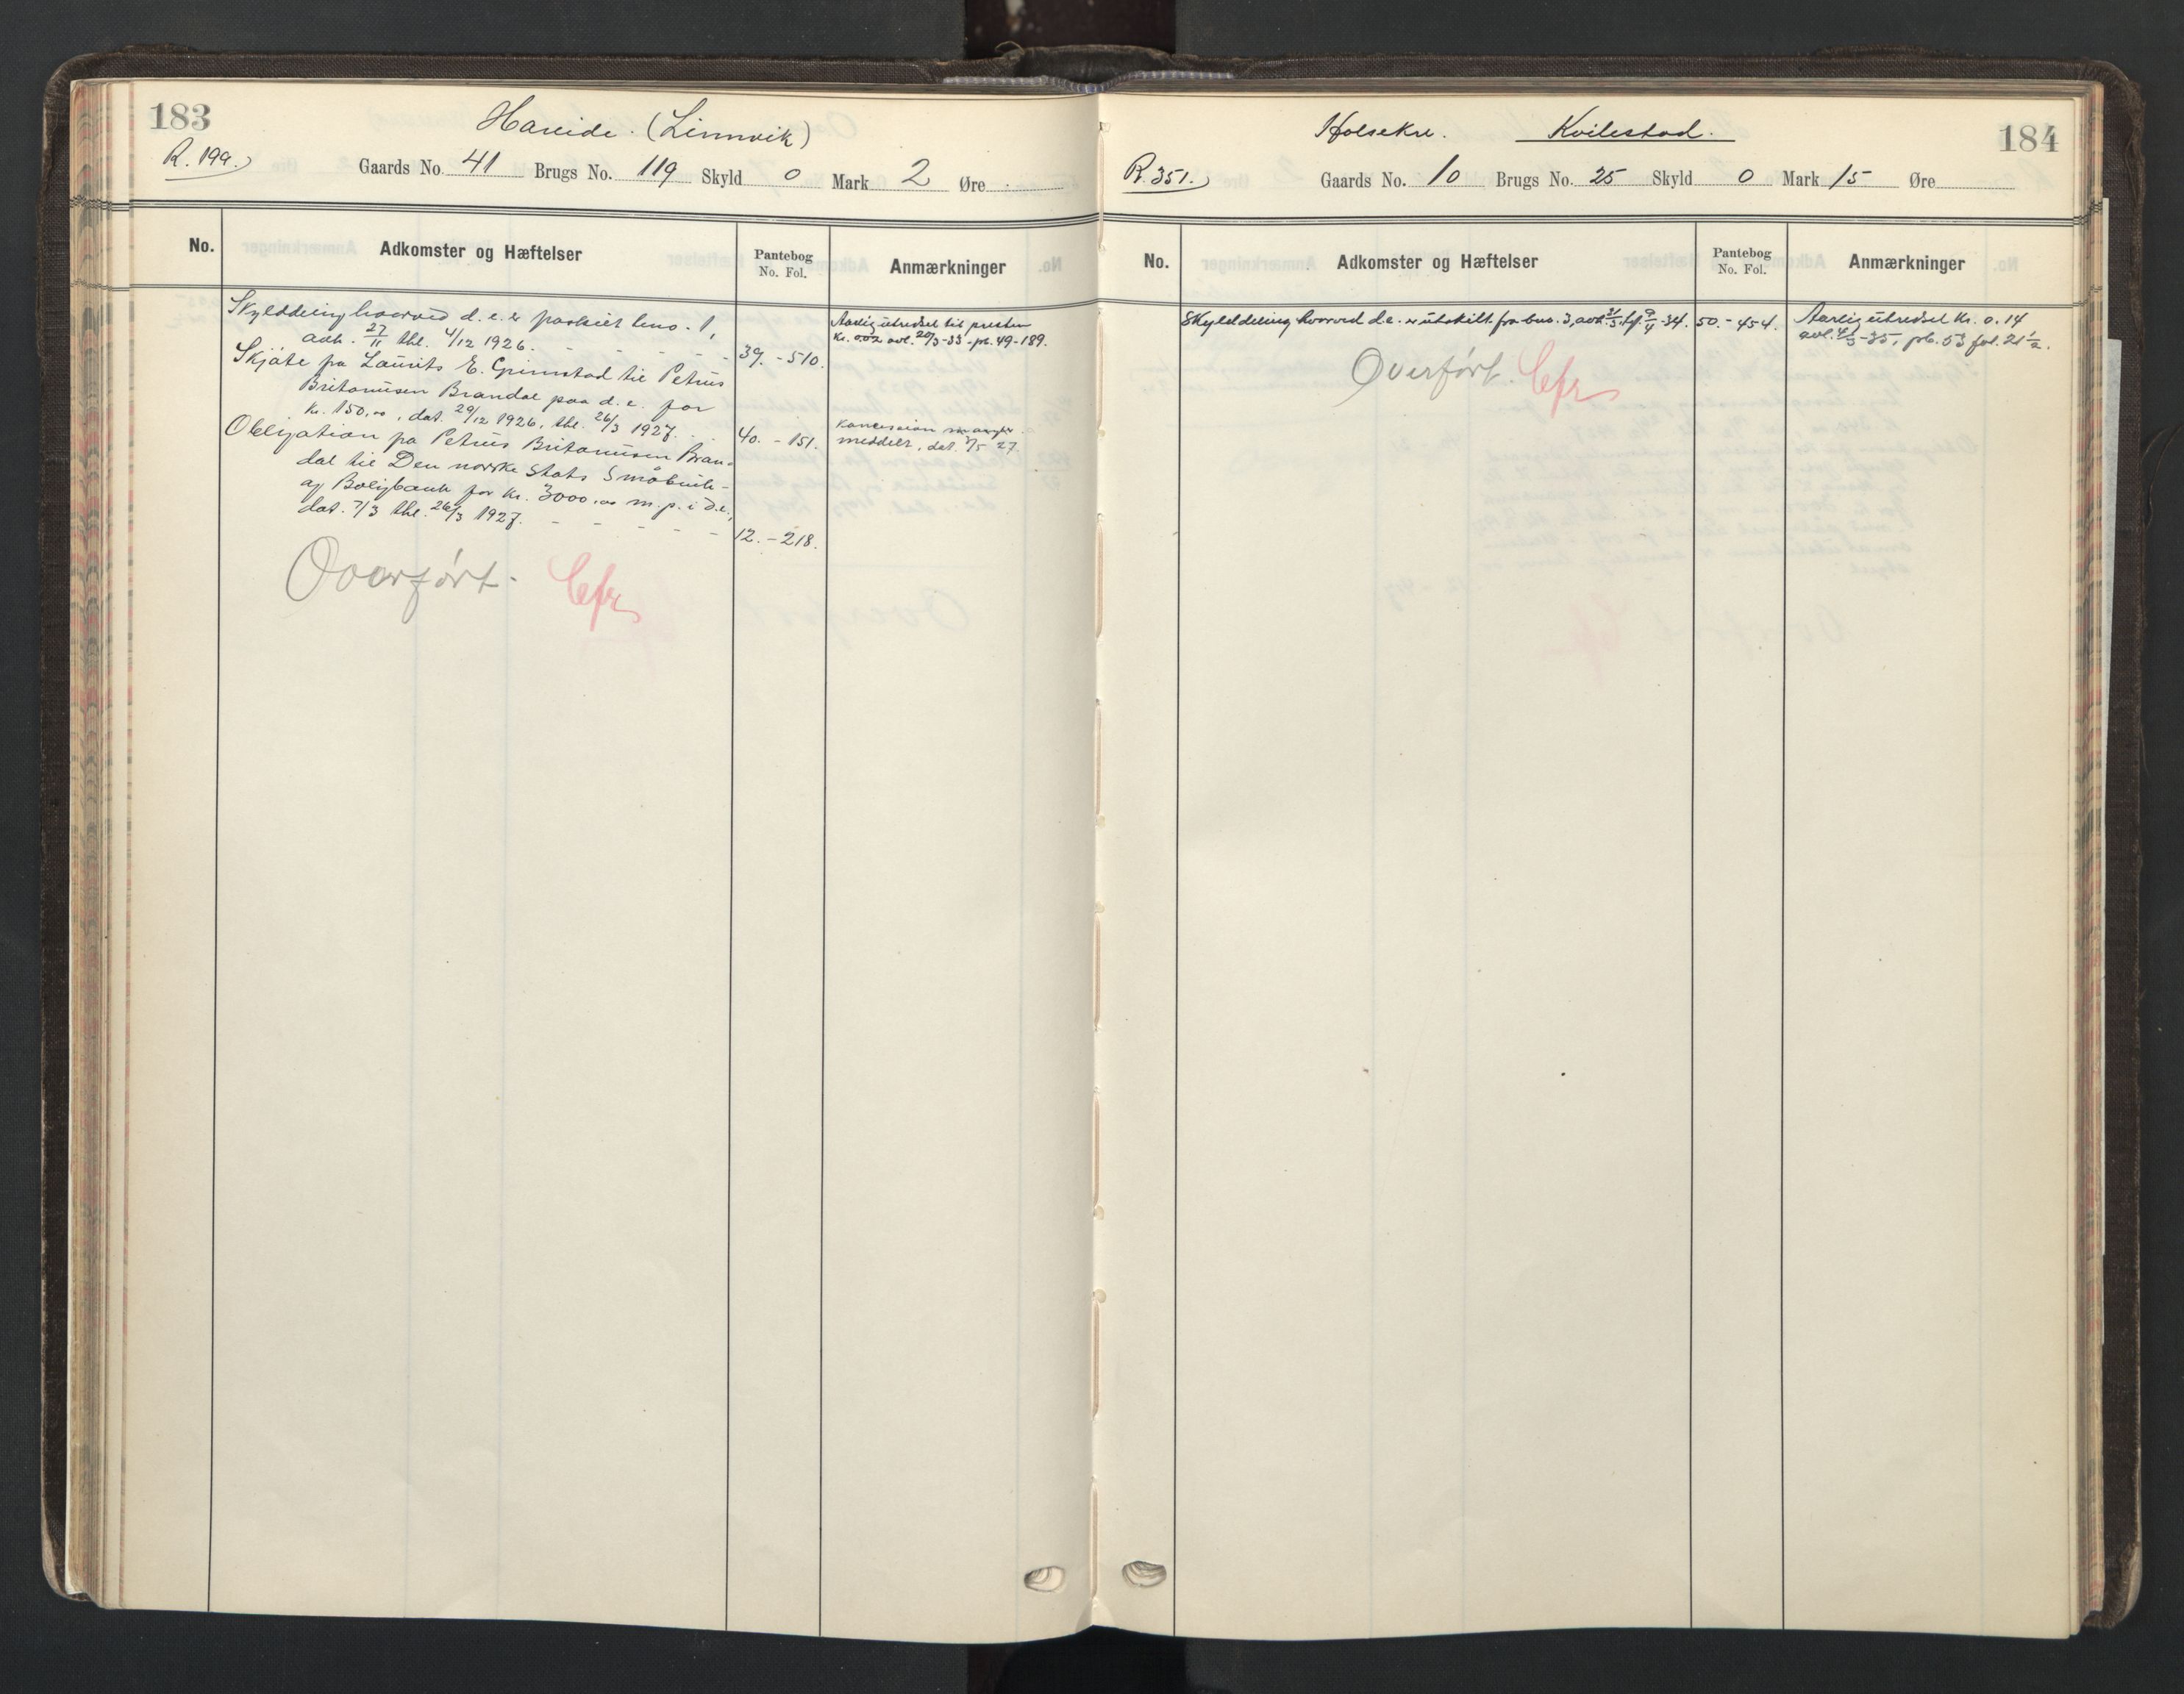 183
Hareide. (Linnvik)
R. 199.
Gaards No. 41 Brugs No. 119 Skyld 0 Mark 2 Øre
No. Adkomster og Hæftelser Pantebog No. Fol. Anmærkninger
Skylddeling hvorved d. e. er fraskilt bno. 1,
avh. 27/11 thl. 4/12 1926. - - - - - 39. - 510.
Aarlig utredsel til presten
Kr. 0.02 avl. 20/3-33 - pb. 49-189.
Skjøte fra Laurits E. Grimstad til Petrus
Britanusen Brandal paa d. e. for
kr. 150,00, dat. 29/12 1926, thl. 26/3 1927. . . 40. - 151.
Koncession mangler.
meddelt, dat. /5 27.
Obligation fra Petrus Britanusen Bran-
dal til Den norske Stats Småbruk-
og Boligbank for kr. 3000,00 m. p. i d.e.,
dat. 7/3 thl. 26/3 1927. - - - - - 12. - 218.
Overført. Cfr
184
Holsekre. Kvilestad.
R. 351.
Gaards No. 10 Brugs No. 25 Skyld 0 Mark 15 Øre
No. Adkomster og Hæftelser Pantebog No. Fol. Anmærkninger
Skylddeling hvorved d.e. er utskilt fra bno. 3, avh. 21/3, tgl. 9/4-34. 50. - 454.
Aarlig utredsel Kr. 0.14
avl. -35, pb. 53 fol. 21 1/2.
Overført. Cfr